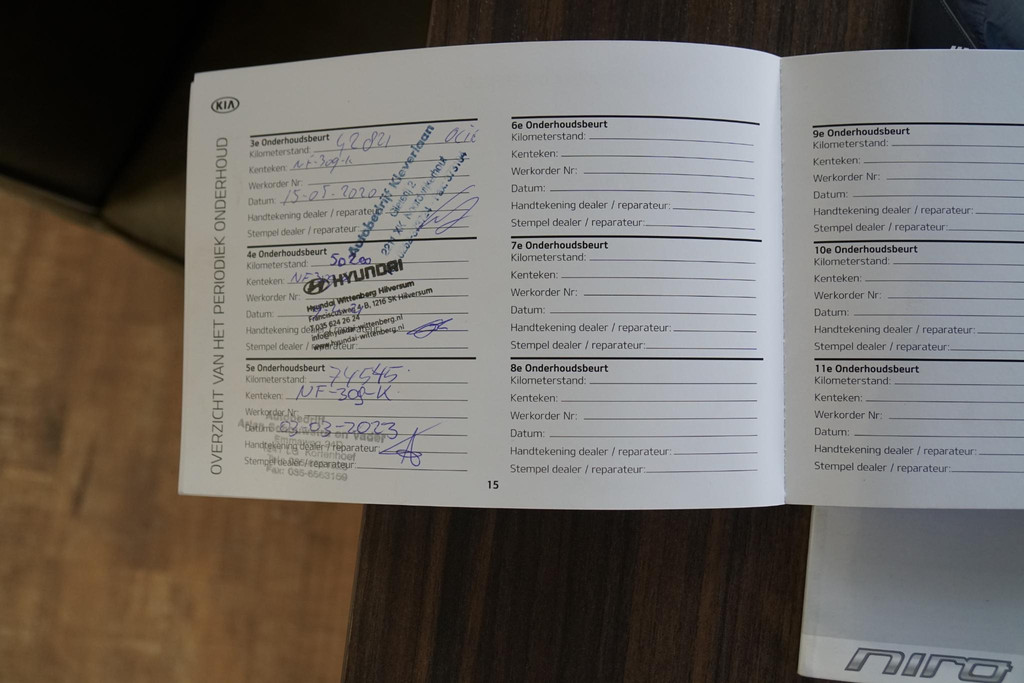 KIA
OVERZICHT VAN HET PERIODIEK ONDERHOUD
3e Onderhoudsbeurt
Kilometerstand: 42821
Kenteken: NF-309-K
Werkorder Nr:
Datum: 15-05-2020
Handtekening dealer / reparateur:
Stempel dealer / reparateur:
Autobedrijf Kleverlaan
4e Onderhoudsbeurt
Kilometerstand: 50200
Kenteken:
Werkorder Nr:
Datum:
Handtekening dealer / reparateur:
Stempel dealer / reparateur:
HYUNDAI
Hyundai Wittenberg Hilversum
Franciscusweg 4-B, 1216 SK Hilversum
T 035 624 26 24
info@hyundai-wittenberg.nl
www.hyundai-wittenberg.nl
5e Onderhoudsbeurt
Kilometerstand: 74545
Kenteken: NF-309-K
Werkorder Nr:
Datum: 03-03-2023
Handtekening dealer / reparateur:
Stempel dealer / reparateur:
Autobedrijf
en Vader
Kortenhoef
Fax: 035-6563169
15
6e Onderhoudsbeurt
Kilometerstand:
Kenteken:
Werkorder Nr:
Datum:
Handtekening dealer / reparateur:
Stempel dealer / reparateur:
7e Onderhoudsbeurt
Kilometerstand:
Kenteken:
Werkorder Nr:
Datum:
Handtekening dealer / reparateur:
Stempel dealer / reparateur:
8e Onderhoudsbeurt
Kilometerstand:
Kenteken:
Werkorder Nr:
Datum:
Handtekening dealer / reparateur:
Stempel dealer / reparateur:
9e Onderhoudsbeurt
Kilometerstand:
Kenteken:
Werkorder Nr:
Datum:
Handtekening dealer / reparateur:
Stempel dealer / reparateur:
10e Onderhoudsbeurt
Kilometerstand:
Kenteken:
Werkorder Nr:
Datum:
Handtekening dealer / reparateur:
Stempel dealer / reparateur:
11e Onderhoudsbeurt
Kilometerstand:
Kenteken:
Werkorder Nr:
Datum:
Handtekening dealer / reparateur:
Stempel dealer / reparateur:
niro